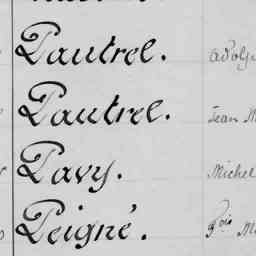 Pautrel. Adolp
Pautrel. Jean M
Pavy. Michel
Peigné. fois M